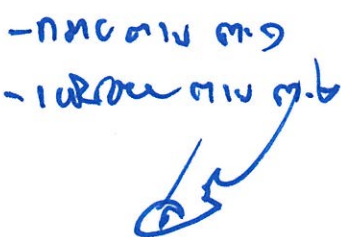 -ทราบ ตาม ๓.๑
-เห็นชอบ ตาม ๓.๒